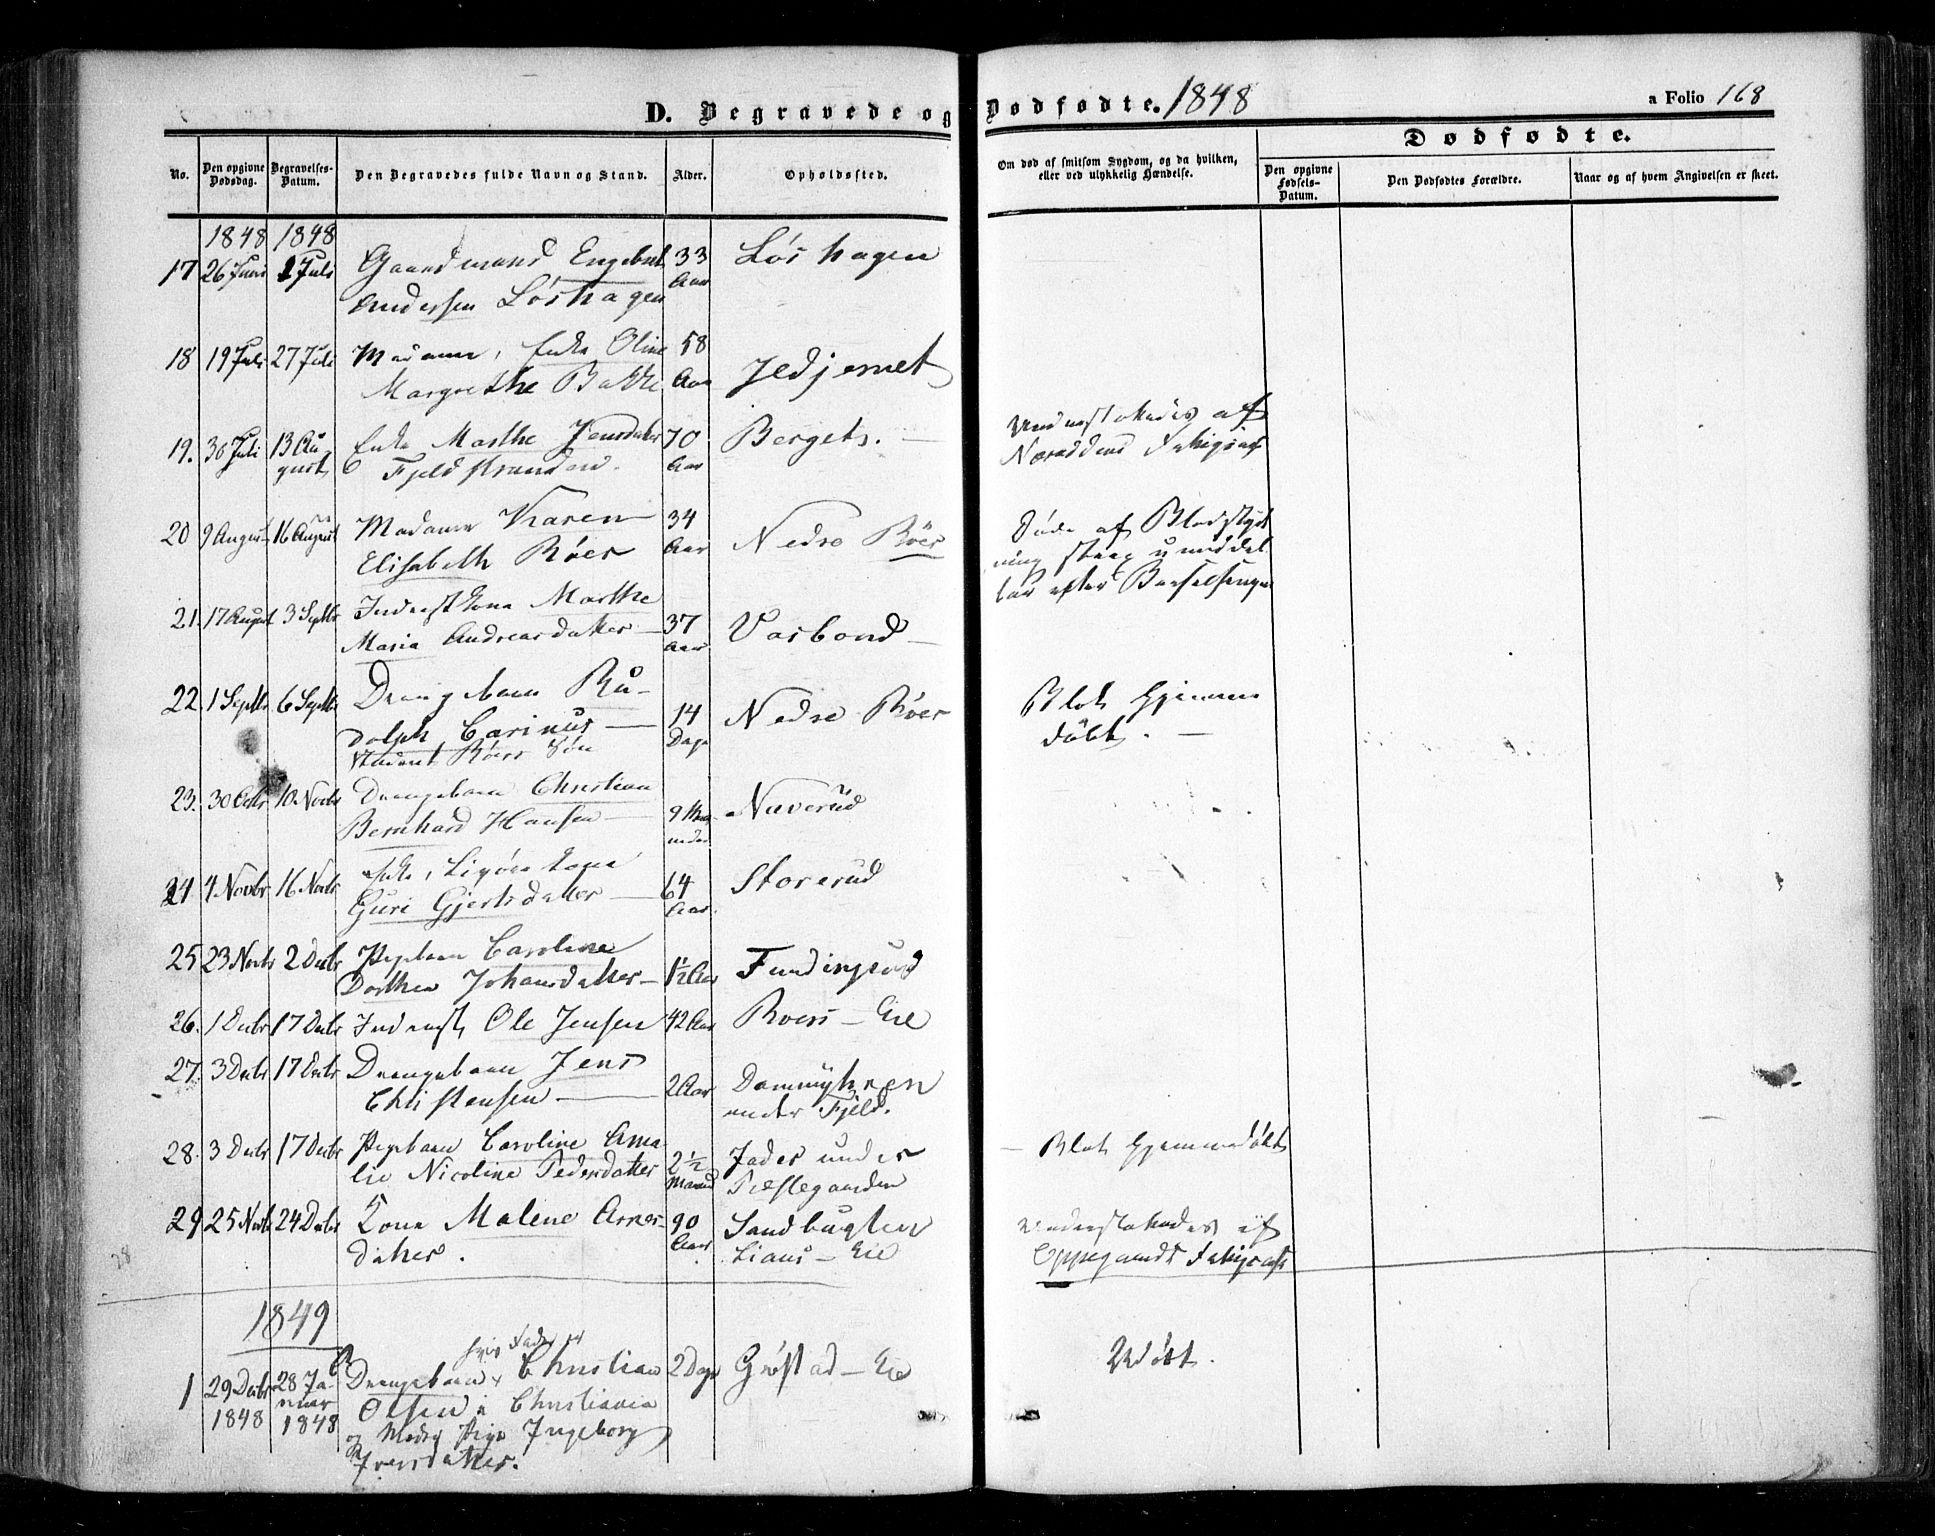 D. Begravede og Dødfødte. 1848
a Folio 168
No.
Den opgivne Dødsdag.
Begravelses-Datum.
Den Begravedes fulde Navn og Stand.
Alder.
Opholdssted.
Om død af smitsom Sygdom, og da hvilken,
eller ved ulykkelig Hændelse.
Dødfødte.
Den opgivne Fødsels-Datum.
Den Dødfødtes Forældre.
Naar og af hvem Angivelsen er skeet.
1848 1848
17 26 Juni 2 Juli Gaardmand Engebret 33 Aar Løshagen
Andersen Løshagen
18 19 Juli 27 Juli Madame, Enke Oline 58 Aar
Margrethe Bakke
19. 30 Juli 13 August Enke Marthe Jensdatter 70 Aar Berget
Fjeldstranden. Understøttedes af
Næsoddens Fattigkasse
20 9 August 16 August Madame Karen 34 Aar Nedre Röer
Elisabeth Röer Døde af Blodstyrt
ning strax umiddel
bar efter Barselsengen
21. 17 August 3 Septbr Inderstkone Marthe
Maria Andreasdatter 37 Aar
22. 1 Septbr 6 Septbr Drengebarn Ru-
dolph Carinus 14 Dage Nedre Röer
Student Röers Søn Blot hjemme
døbt.
23. 30 Octbr 10 Novbr Drengebarn Christian
Bernhard Hansen 9 Maaneder Naverud
24 4 Novbr 16 Novbr Enke,
Guri Gjertsdatter 64 Aar. Storerud
25 23 Novbr 2 Decbr Pigebarn Caroline
Dorthea Johansdatter 1½ Aar Fundingsrud
26. 1 Decbr 17 Decbr Inderst Ole Jensen 42 Aar Roers Eie
27. 3 Decbr 17 Decbr Drengebarn Jens
Christensen 2 Aar Dammyhren
under Fjeld.
28. 3 Decbr 17 Decbr Pigebarn Caroline Ama
lie Nicoline Pedersdatter 2½ Maaned under
Præstegaarden Blot hjemmedøbt
29 25 Novbr 24 Decbr Kone Malene Arnes-
datter. 90 Aar Sandbugten
Eie Understøttedes af
Oppegaards Fattigkasse
28
1849
1 29 Decbr 1848 28 Januar 1848 Drengebarn, hvis Fader er Christian 2 Dage Grøstad Eie Udøbt.
Olsen i Christiania
og Moder Pige Ingeborg
Iversdatter.